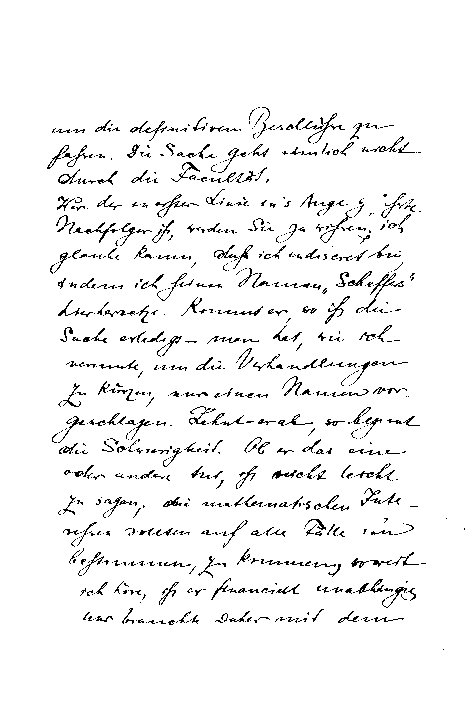 um die definitiven Beschlüsse zu
fassen. Die Sache geht nämlich nicht
durch die Facultät.
Wer der in erster Linie in's Auge g
Nachfolger ist, werden Sie zu wissen, ich
glaube kaum, daß ich indiscret bin,
indem ich seinen Namen "Scheffers"
hierhersetze. Kommt er, so ist die
Sache erledigt – man hat, wie ich
vermute, um die Verhandlungen
zu kürzen, nur einen Namen vor-
geschlagen. Lehnt er ab, so beginnt
die Schwierigkeit. Ob er das eine
oder andere tut, ist nicht leicht
zu sagen; die mathematischen Inte-
ressen sollten auf alle Fälle ihn
bestimmen, zu kommen, soweit
ich höre, ist er financiell unabhängig,
brauchte daher mit dem